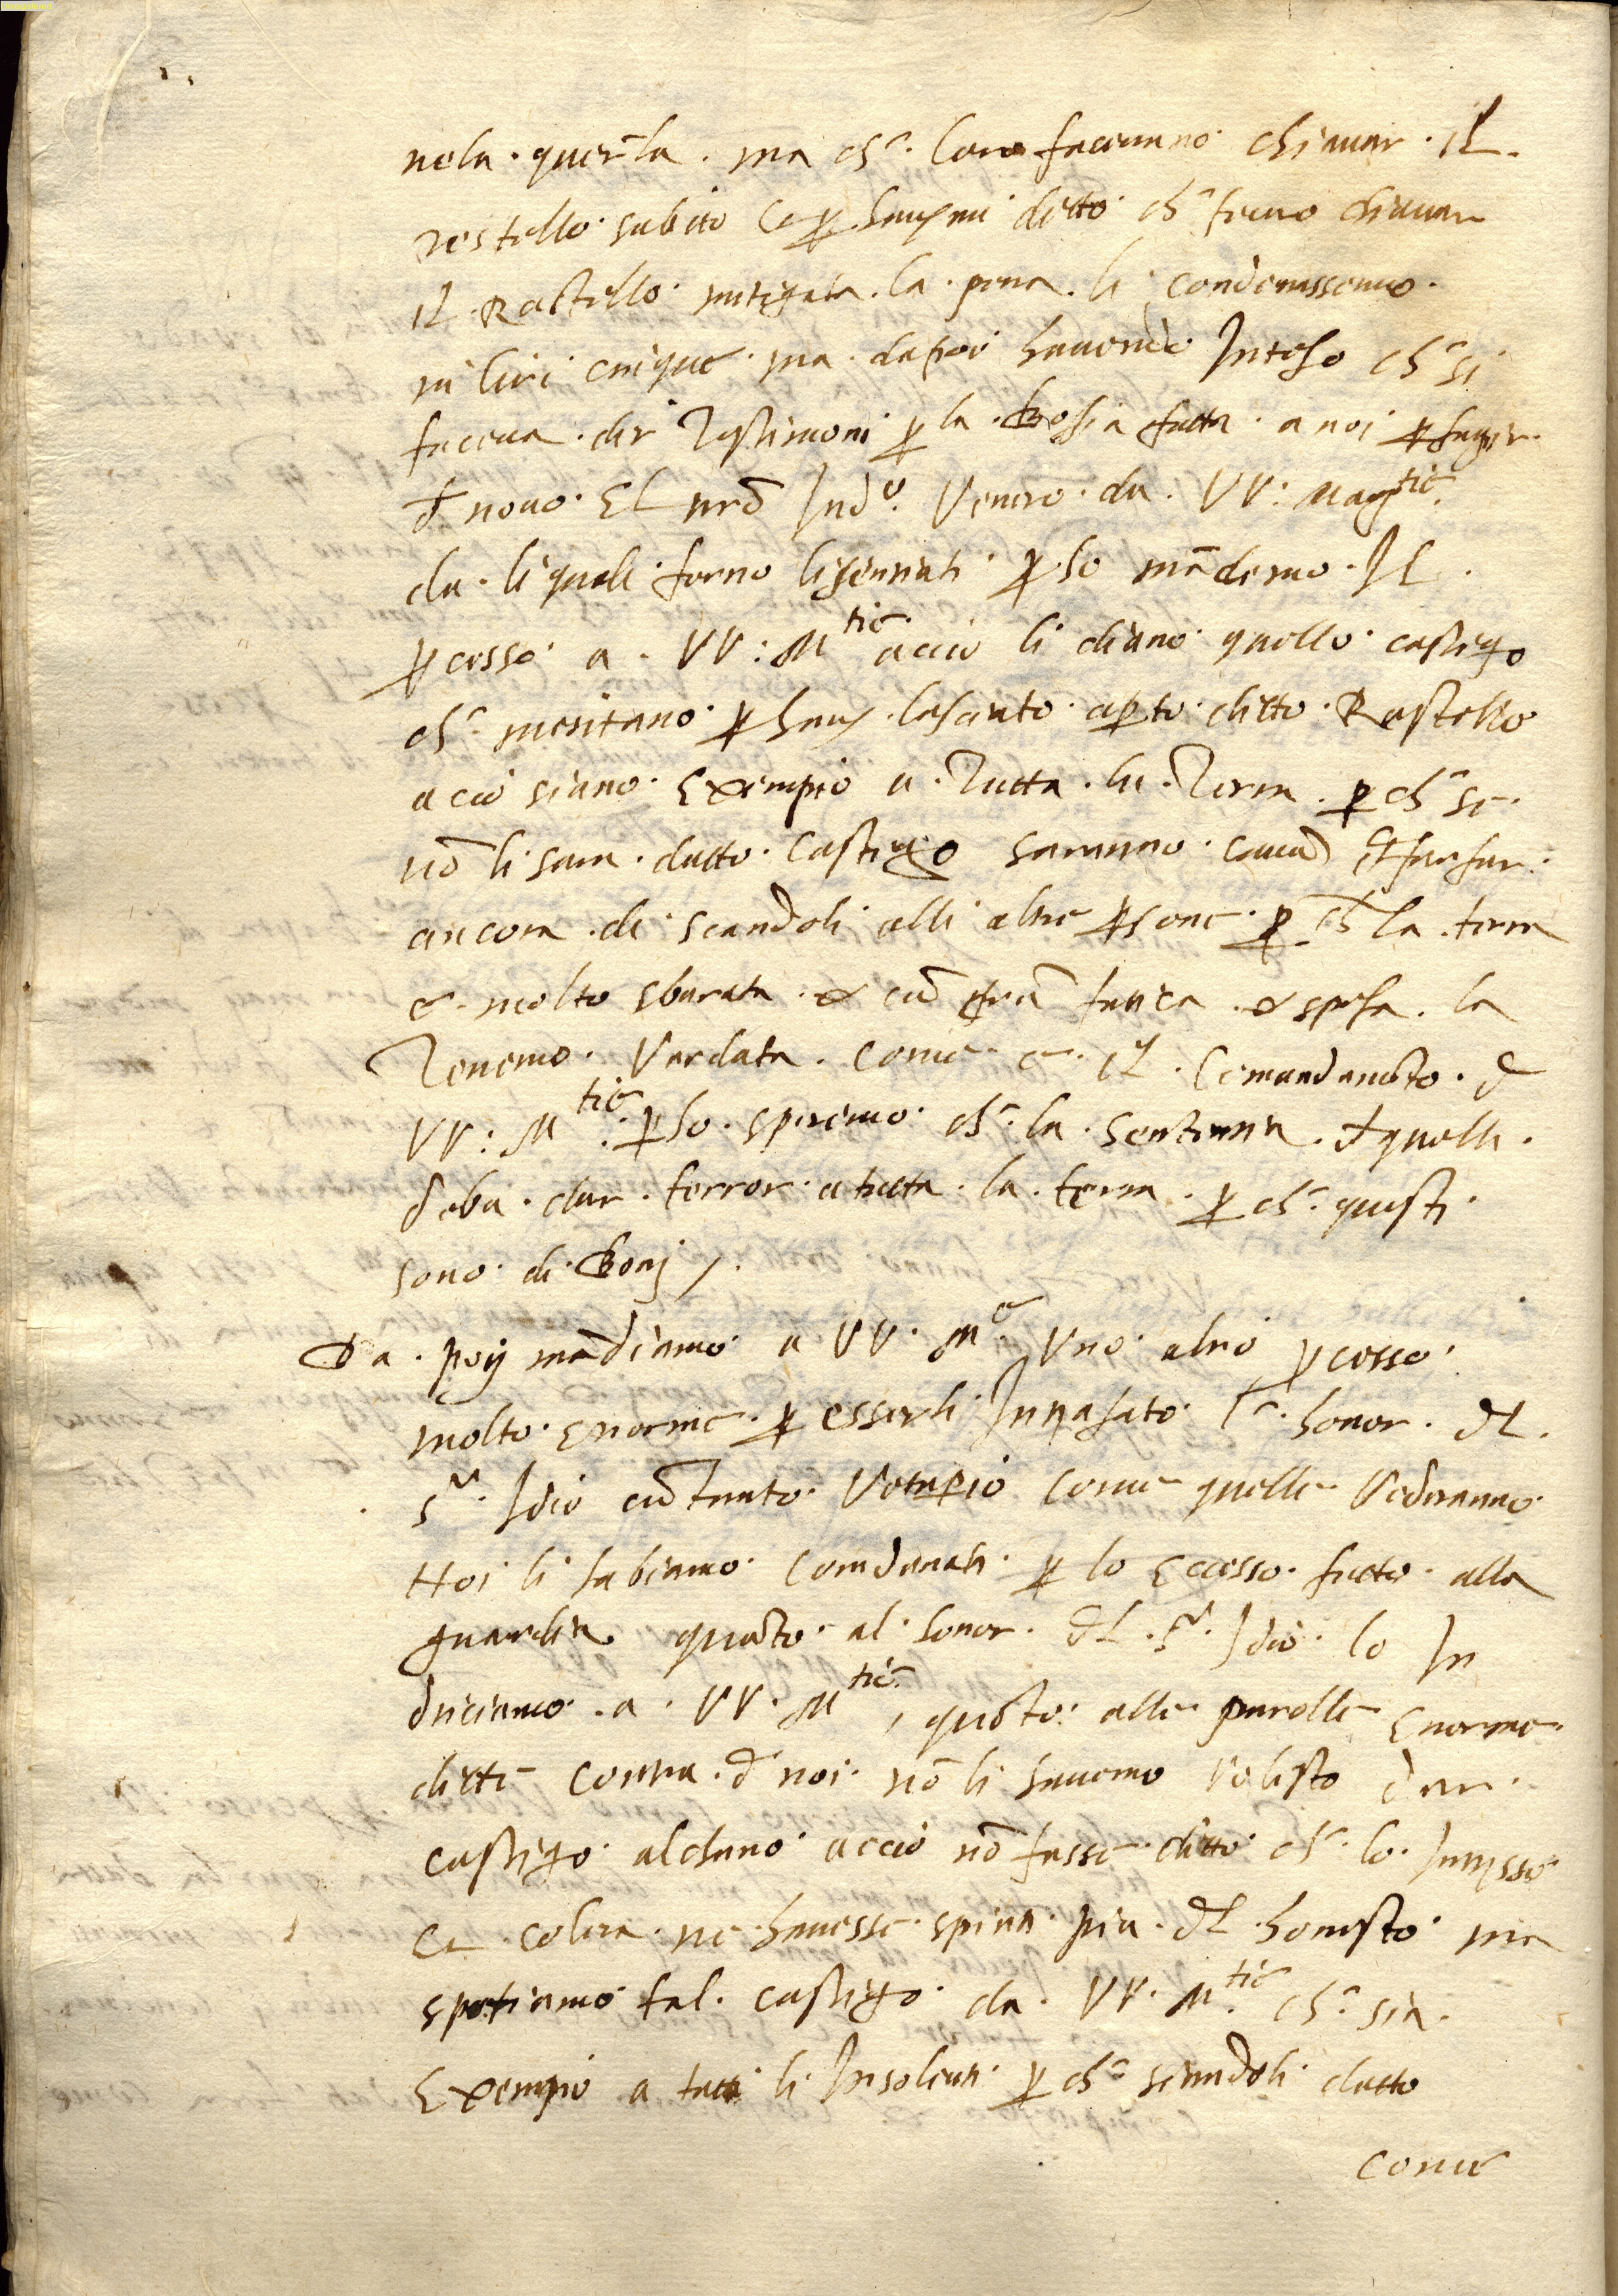 nela querela. ma chˉ. loro facevano chiavar. il.
restello subito Et ꝑ havermi detto chˉ feceno chiavar
il Rastello mitigata. la. pena. li condenassemo.
in lire cinque ma. dapoi havendo Inteso chˉ si
faceva. dir Testimoni ꝑ la. bosia fatta. a noi
đ novo. El nrō Indˢ. Venero. da. VV: Magᵗⁱᶜ.
da. li quali forno lisentiati ꝑ so mādemo. Il.
ꝓcesso a. VV: Mᵗⁱᶜ accio li diano quello castigo
chˉ meritano ꝑ haver lasciato aꝑto ditto Rastello
acio siano Exempio a. Tutta. la. Terra. ꝑ chˉ se.
nō li sara. datto. Castigo saranno causa đ far far.
ancora. di scandoli alli altre ꝑsone ꝑ chˉ la. terra
e. molto sbarata. & cū grā fatica. & spesa. la
Tenemo. Vardata. come e. il. Comandamēto. đ
VV: Mᵗⁱᶜ: ꝑ so. speremo chˉ. la. Sententia. đ quelle.
đeba. dar. terror a tutta. la. terra. ꝑ chˉ. questi
sono di Bonj /.
Da. poij mādiamo a VV. Mᶜᵉ. Uno altro ꝓcesso
molto. Enorme. ꝑ esserli Intrasato l. honor. đl.
Sʳ. Idio cū Tanto. Vetuꝑio come quelle Vederanno
Noi li habiamo Condanati. ꝑ lo Eccesso. fatto. alla
guardia quāto. al. honor. đl. Sʳ. Idio. lo In
duciamo. a. VV. Mᵗⁱᶜ, quāto: alle parolle Enorme.
ditte contra. đ noi. nō li havemo volesto dar.
castigo alchuno accio nō fusse ditto chˉ. lo. Interesse
Et colera. ne. havesse. spinti piu. đl. honesto ma
spetiamo tal. castigo. da. VV. Mᵗⁱᶜ. chˉ. sia.
Exempio a tutti li Insolenti ꝑ chˉ seandoli datto
come